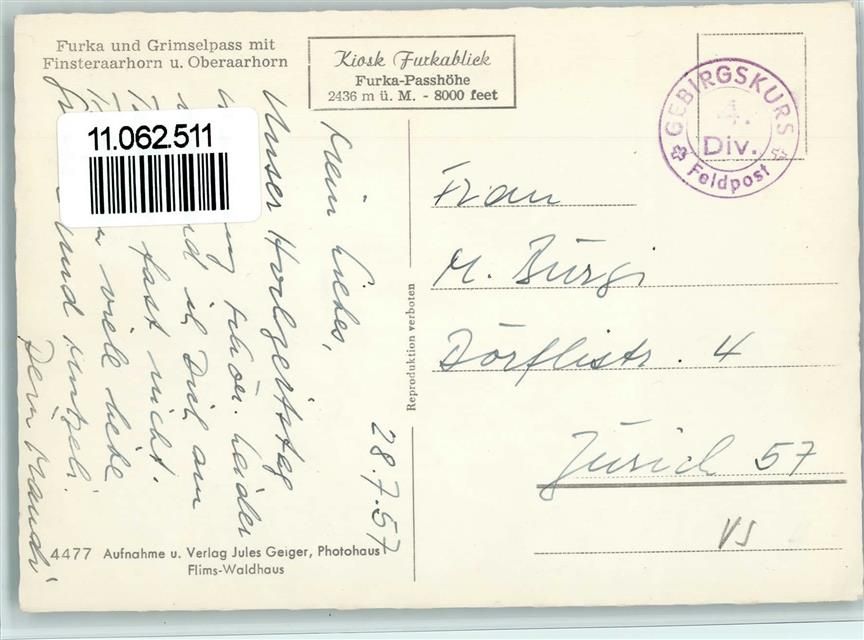 Furka und Grimselpass mit
Finsteraarhorn u. Oberaarhorn
Kiosk Furkablick
Furka-Passhöhe
2436 m ü. M. - 8000 feet
11.062.511
GEBIRGSKURS
4.
Div.
Feldpost
28.7.57
Mein liebes,
Unser Hochzeitstag
schön. leider
ich Dich am
fast nicht.
viele liebe
und
Dein
Reproduktion verboten
Frau
M. Bürgi
Dörflistr. 4
Zürich 57
VS
4477 Aufnahme u. Verlag Jules Geiger, Photohaus
Flims-Waldhaus